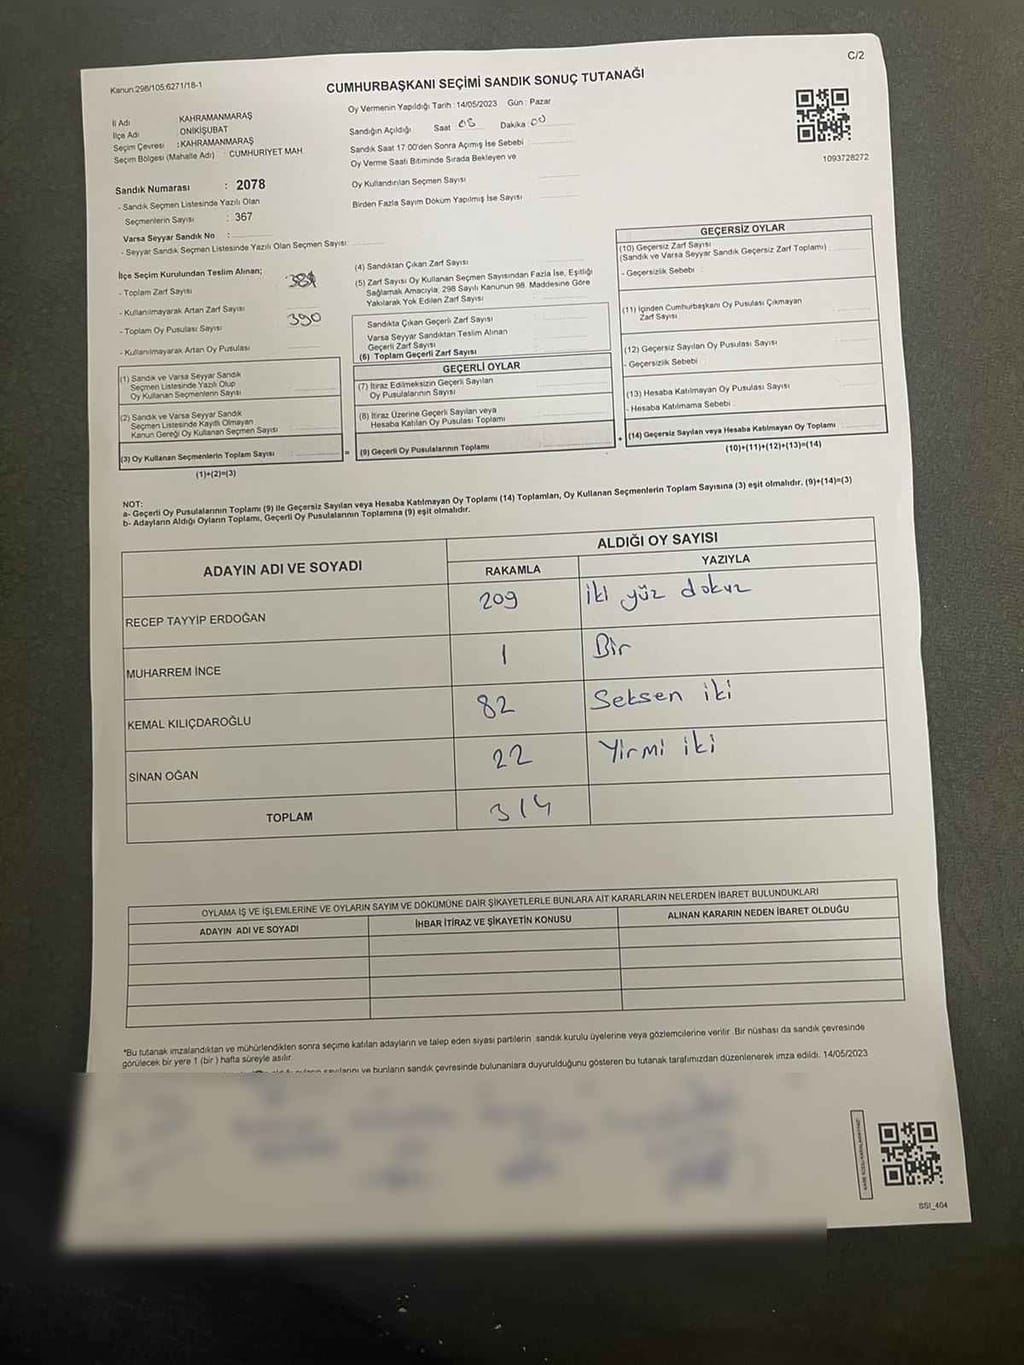 C/2
Kanun:298/105;6271/18-1
CUMHURBAŞKANI SEÇİMİ SANDIK SONUÇ TUTANAĞI
Oy Vermenin Yapıldığı Tarih : 14/05/2023 Gün : Pazar
İl Adı : KAHRAMANMARAŞ
İlçe Adı : ONİKİŞUBAT
Seçim Çevresi : KAHRAMANMARAŞ
Seçim Bölgesi (Mahalle Adı) : CUMHURİYET MAH.
Sandığın Açıldığı Saat 08 Dakika 00
Sandık Saat 17:00'den Sonra Açımış İse Sebebi
Oy Verme Saati Bitiminde Sırada Bekleyen ve
Oy Kullandırılan Seçmen Sayısı
Birden Fazla Sayım Döküm Yapılmış İse Sayısı
1093728272
Sandık Numarası : 2078
- Sandık Seçmen Listesinde Yazılı Olan
Seçmenlerin Sayısı : 367
Varsa Seyyar Sandık No :
- Seyyar Sandık Seçmen Listesinde Yazılı Olan Seçmen Sayısı:
İlçe Seçim Kurulundan Teslim Alınan;
- Toplam Zarf Sayısı
- Kullanılmayarak Artan Zarf Sayısı
- Toplam Oy Pusulası Sayısı 390
- Kullanılmayarak Artan Oy Pusulası
(1) Sandık ve Varsa Seyyar Sandık
Seçmen Listesinde Yazılı Olup
Oy Kullanan Seçmenlerin Sayısı
(2) Sandık ve Varsa Seyyar Sandık
Seçmen Listesinde Kayıtlı Olmayan
Kanun Gereği Oy Kullanan Seçmen Sayısı
(3) Oy Kullanan Seçmenlerin Toplam Sayısı
(1)+(2)=(3)
=
(4) Sandıktan Çıkan Zarf Sayısı
(5) Zarf Sayısı Oy Kullanan Seçmen Sayısından Fazla İse, Eşitliği
Sağlamak Amacıyla, 298 Sayılı Kanunun 98. Maddesine Göre
Yakılarak Yok Edilen Zarf Sayısı
Sandıkta Çıkan Geçerli Zarf Sayısı
Varsa Seyyar Sandıktan Teslim Alınan
Geçerli Zarf Sayısı
(6) Toplam Geçerli Zarf Sayısı
GEÇERLİ OYLAR
(7) İtiraz Edilmeksizin Geçerli Sayılan
Oy Pusulalarının Sayısı
(8) İtiraz Üzerine Geçerli Sayılan veya
Hesaba Katılan Oy Pusulası Toplamı
(9) Geçerli Oy Pusulalarının Toplamı
+
GEÇERSİZ OYLAR
(10) Geçersiz Zarf Sayısı
(Sandık ve Varsa Seyyar Sandık Geçersiz Zarf Toplamı)
- Geçersizlik Sebebi :
(11) İçinden Cumhurbaşkanı Oy Pusulası Çıkmayan
Zarf Sayısı
(12) Geçersiz Sayılan Oy Pusulası Sayısı
- Geçersizlik Sebebi
(13) Hesaba Katılmayan Oy Pusulası Sayısı
- Hesaba Katılmama Sebebi :
(14) Geçersiz Sayılan veya Hesaba Katılmayan Oy Toplamı
(10)+(11)+(12)+(13)=(14)
NOT:
a- Geçerli Oy Pusulalarının Toplamı (9) ile Geçersiz Sayılan veya Hesaba Katılmayan Oy Toplamı (14) Toplamları, Oy Kullanan Seçmenlerin Toplam Sayısına (3) eşit olmalıdır. (9)+(14)=(3)
b- Adayların Aldığı Oyların Toplamı, Geçerli Oy Pusulalarının Toplamına (9) eşit olmalıdır.
ADAYIN ADI VE SOYADI
ALDIĞI OY SAYISI
RAKAMLA YAZIYLA
RECEP TAYYİP ERDOĞAN 209 iki yüz dokuz
MUHARREM İNCE 1 Bir
KEMAL KILIÇDAROĞLU 82 Seksen iki
SİNAN OĞAN 22 Yirmi iki
TOPLAM 314
OYLAMA İŞ VE İŞLEMLERİNE VE OYLARIN SAYIM VE DÖKÜMÜNE DAİR ŞİKAYETLERLE BUNLARA AİT KARARLARIN NELERDEN İBARET BULUNDUKLARI
ADAYIN ADI VE SOYADI İHBAR İTİRAZ VE ŞİKAYETİN KONUSU ALINAN KARARIN NEDEN İBARET OLDUĞU
*Bu tutanak imzalandıktan ve mühürlendikten sonra seçime katılan adayların ve talep eden siyasi partilerin sandık kurulu üyelerine veya gözlemcilerine verilir. Bir nüshası da sandık çevresinde
görülecek bir yere 1 (bir ) hafta süreyle asılır.
ve bunların sandık çevresinde bulunanlara duyurulduğunu gösteren bu tutanak tarafımızdan düzenlenerek imza edildi. 14/05/2023
SSI_404